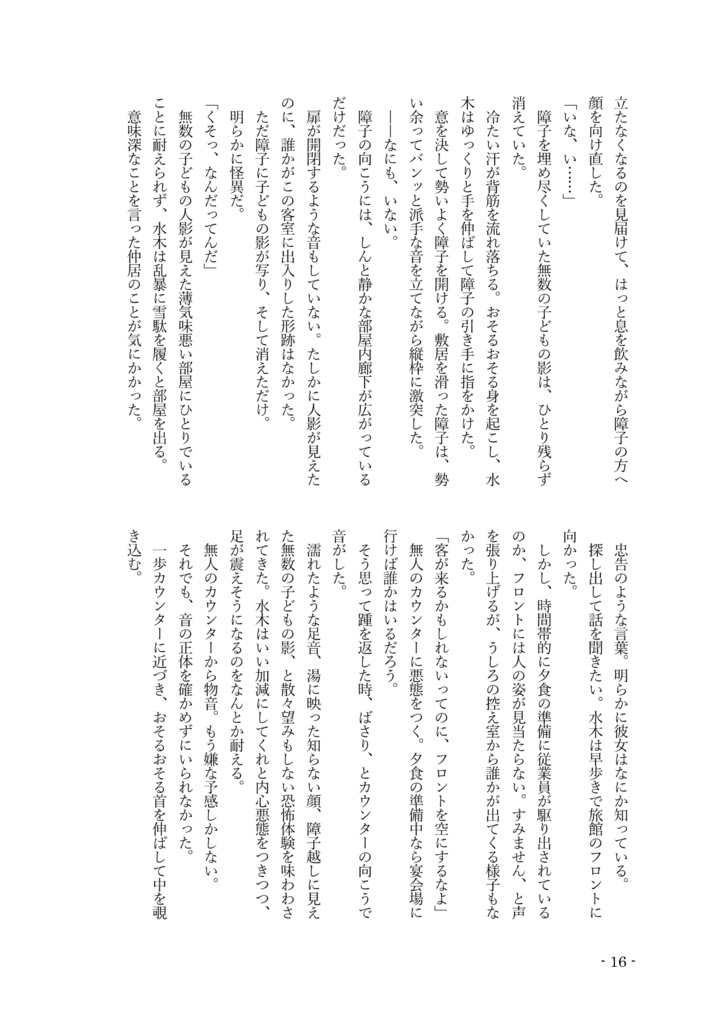 立たなくなるのを見届けて、はっと息を飲みながら障子の方へ
顔を向け直した。
「いな、い……」
障子を埋め尽くしていた無数の子どもの影は、ひとり残らず
消えていた。
冷たい汗が背筋を流れ落ちる。おそるおそる身を起こし、水
木はゆっくりと手を伸ばして障子の引き手に指をかけた。
意を決して勢いよく障子を開ける。敷居を滑った障子は、勢
い余ってバンッと派手な音を立てながら縦枠に激突した。
――なにも、いない。
障子の向こうには、しんと静かな部屋内廊下が広がっている
だけだった。
扉が開閉するような音もしていない。たしかに人影が見えた
のに、誰かがこの客室に出入りした形跡はなかった。
ただ障子に子どもの影が写り、そして消えただけ。
明らかに怪異だ。
「くそっ、なんだってんだ」
無数の子どもの人影が見えた薄気味悪い部屋にひとりでいる
ことに耐えられず、水木は乱暴に雪駄を履くと部屋を出る。
意味深なことを言った仲居のことが気にかかった。
忠告のような言葉。明らかに彼女はなにか知っている。
探し出して話を聞きたい。水木は早歩きで旅館のフロントに
向かった。
しかし、時間帯的に夕食の準備に従業員が駆り出されている
のか、フロントには人の姿が見当たらない。すみません、と声
を張り上げるが、うしろの控え室から誰かが出てくる様子もな
かった。
「客が来るかもしれないってのに、フロントを空にするなよ」
無人のカウンターに悪態をつく。夕食の準備中なら宴会場に
行けば誰かはいるだろう。
そう思って踵を返した時、ばさり、とカウンターの向こうで
音がした。
濡れたような足音、湯に映った知らない顔、障子越しに見え
た無数の子どもの影、と散々望みもしない恐怖体験を味わわさ
れてきた。水木はいい加減にしてくれと内心悪態をつきつつ、
足が震えそうになるのをなんとか耐える。
無人のカウンターから物音。もう嫌な予感しかしない。
それでも、音の正体を確かめずにいられなかった。
一歩カウンターに近づき、おそるおそる首を伸ばして中を覗
き込む。
- 16 -